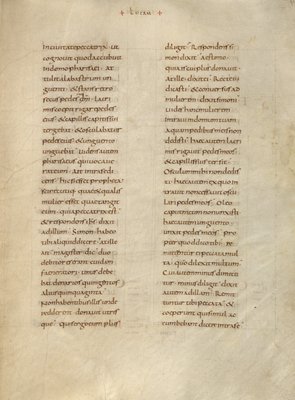 LUCAM
Incivitate peccatrix ut
cognovit quod accubuit
Indomo pharisaei At
tulit alabastrum un
guenti & stans retro
secus pedes dni lacri
mis coepit rigare pedes
eius & capillis capitis sui
tergebat & osculabatur
pedes eius & unguento
unguebat Videns autem
pharisaeus qui vocave
rat eum Ait intra se di
cens hic si esset propheta
sciret utique quae & qualis
mulier esset quae tangit
eum quia peccatrix est
& respondens ihs dixit
ad illum Simon habeo
tibi aliquid dicere At ille
ait magister dic duo
debitores erant cuidam
faeneratori unus debe
bat denarios quingentos
alius quinquaginta
Non habentibus illis unde
redderent donavit utris
que quis ergo eum plus
diligit Respondens si
mon dixit aestimo
quia is cui plus donavit
At ille dixit ei Recte iu
dicasti & conversus ad
mulierem dixit simoni
Vides hanc mulierem
Intravi in domum tuam
aquam pedibus meis non
dedisti haec autem lacri
mis rigavit pedes meos
& capillis suis tersit
Osculum mihi non dedis
ti haec autem ex quo in
travit non cessavit oscu
lari pedes meos Oleo
caput meum non unxisti
haec autem unguento
unxit pedes meos pro
pter quod dico tibi re
mittentur ei peccata mul
ta quo dilexit multum
Cui autem minus dimitti
tur minus diligit dixit
autem ad illam Remit
tuntur tibi peccata &
coeperunt qui simul ac
cumbebant dicere intra se